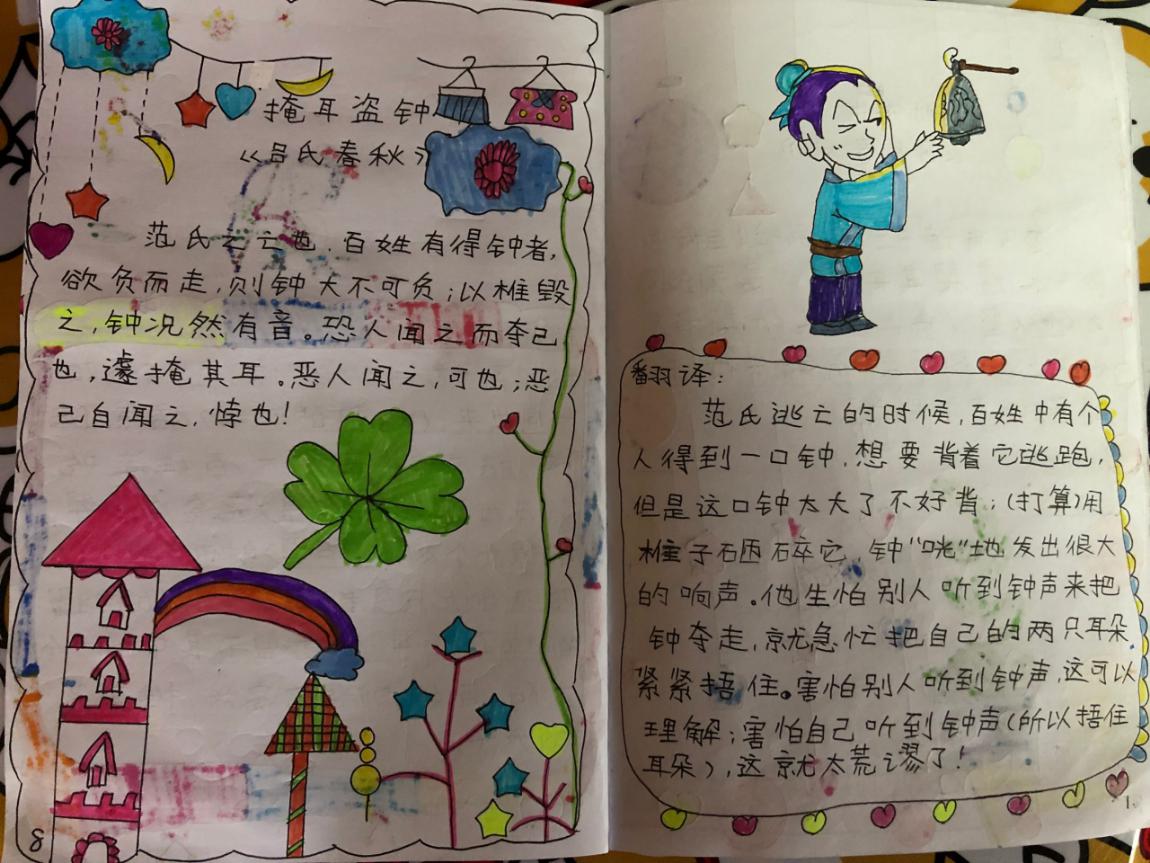 掩耳盗钟
《吕氏春秋》
范氏之亡也，百姓有得钟者，
欲负而走，则钟大不可负；以椎毁
之，钟况然有音。恐人闻之而夺己
也，遽掩其耳。恶人闻之，可也；恶
己自闻之，悖也！
8
翻译：
范氏逃亡的时候，百姓中有个
人得到一口钟，想要背着它逃跑，
但是这口钟太大了不好背；（打算）用
椎子砸碎它，钟“咣”地发出很大
的响声。他生怕别人听到钟声来把
钟夺走，就急忙把自己的两只耳朵
紧紧捂住。害怕别人听到钟声，这可以
理解；害怕自己听到钟声（所以捂住
耳朵），这就太荒谬了！